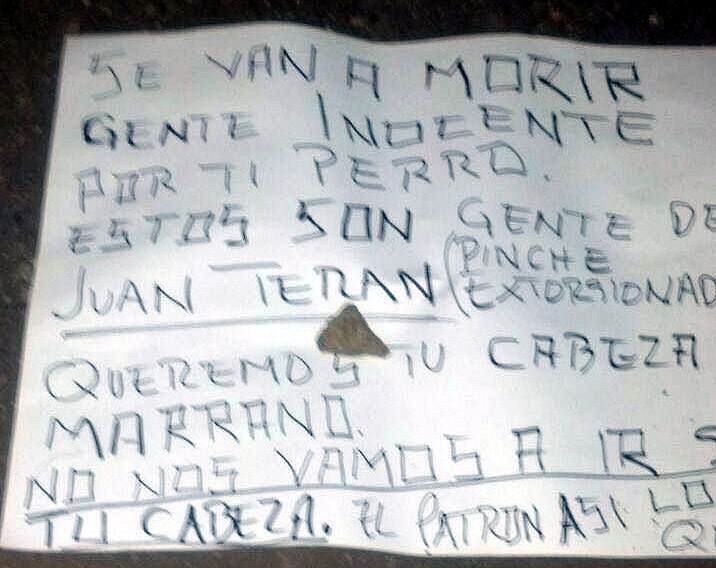 SE VAN A MORIR
GENTE INOCENTE
POR TI PERRO.
ESTOS SON GENTE DE
JUAN TERAN (PINCHE
EXTORSIONAD
QUEREMOS TU CABEZA
MARRANO.
NO NOS VAMOS A IR S
TU CABEZA. EL PATRON ASI LO
Q